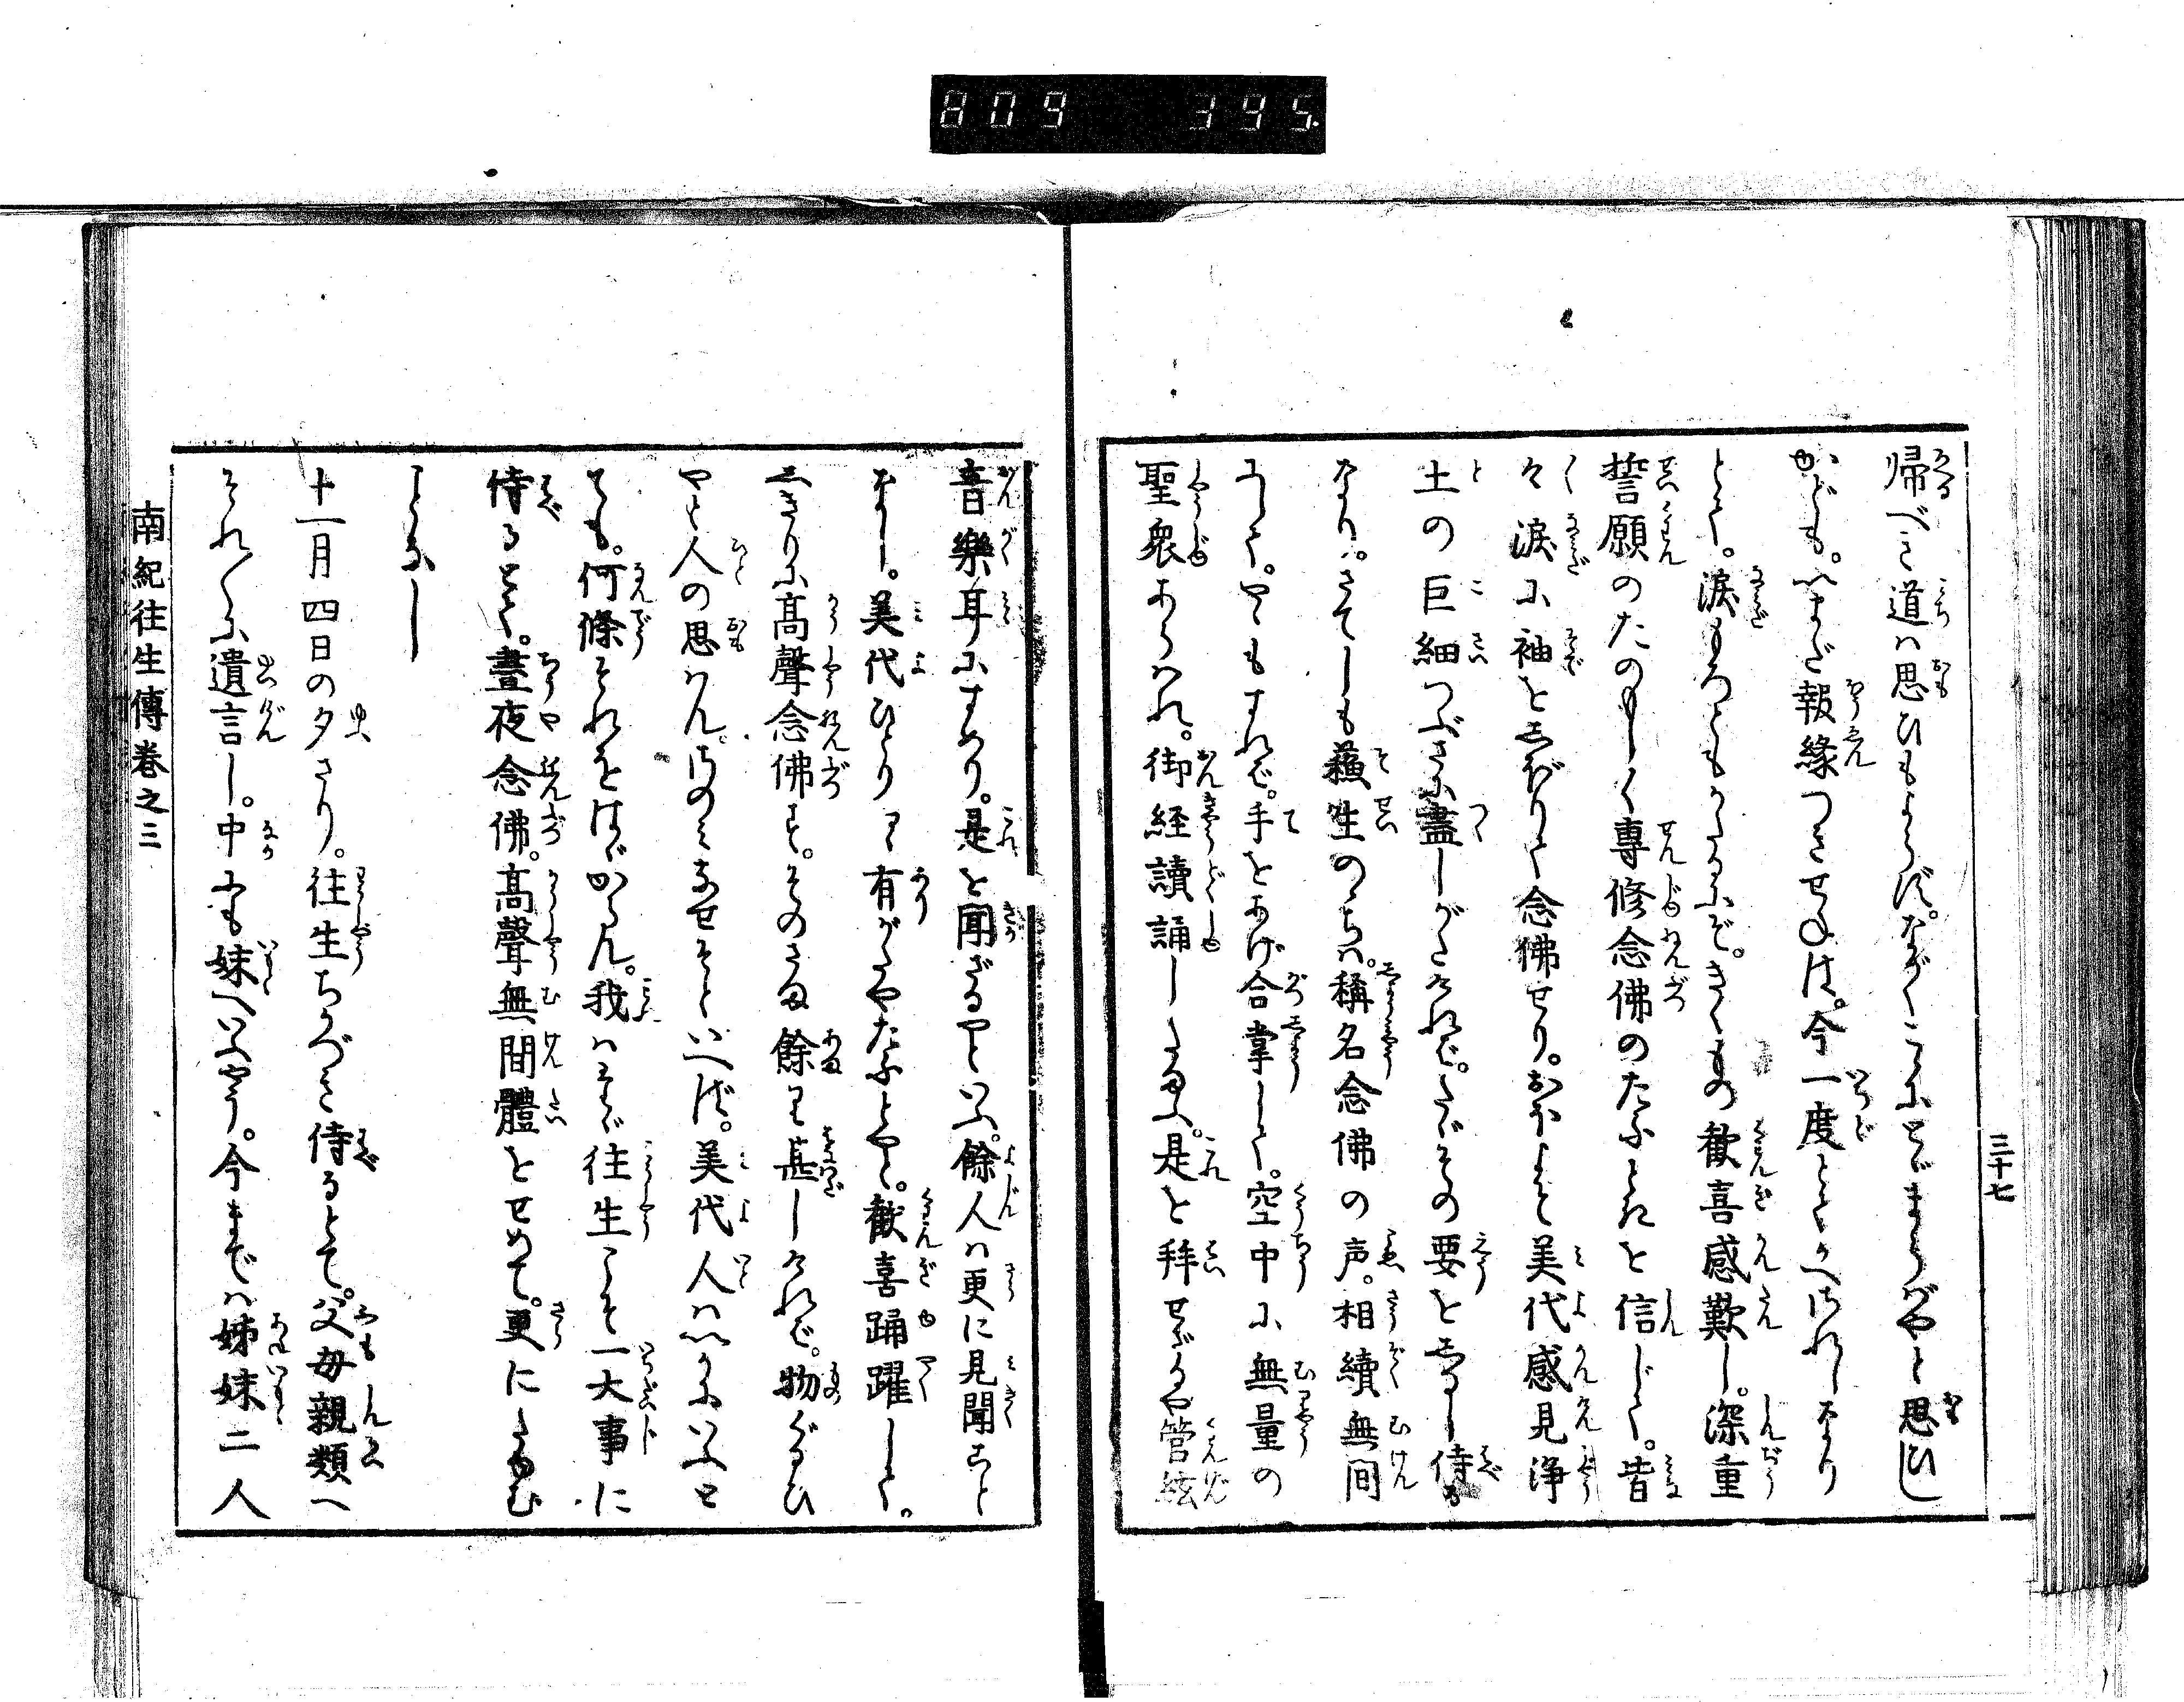 809 395.
三十七
帰べき道ハ思ひもよらず。ながくこゝにとゞまらばやと思ひし
かども。いまだ報縁つきせねは。今一度とてかへされしなり
とて。涙もろともかたるにぞ。きくもの歓喜感歎し。深重
誓願のたのもしく専修念佛のたふときを信じて。皆
々涙に袖をしぼりて念佛せり。おほよそ美代感見浄
土の巨細つぶさに盡しがたければ。たゞその要をしるし侍る
なり。さてしも蘓生のゝちハ。稱名念佛の声。相續無間
にして。やゝもすれば。手をあげ合掌して。空中に無量の
聖衆あらハれ。御経讀誦したまふ。是を拜せばや管絃
音樂耳にすめり。是を聞ざるやといふ。餘人ハ更に見聞こと
なし。美代ひとり有がたやたふとやと。歓喜踊躍して。
しきりに髙聲念佛す。そのさま餘り甚しければ。物ぐるひ
やと人の思ハん。さのミなせそといへば。美代人ハいかにいふと
も。何條それをはゞからん。我ハたゞ往生こそ一大事に
侍るとて。晝夜念佛。髙聲無間體をせめて。更にたゆむ
ことなし
十一月四日の夕さり。往生ちかづき侍るとて。父母親類へ
それ〳〵に遺言し。中にも妹へいふやう。今までハ姉妹二人
南紀往生傳巻之三